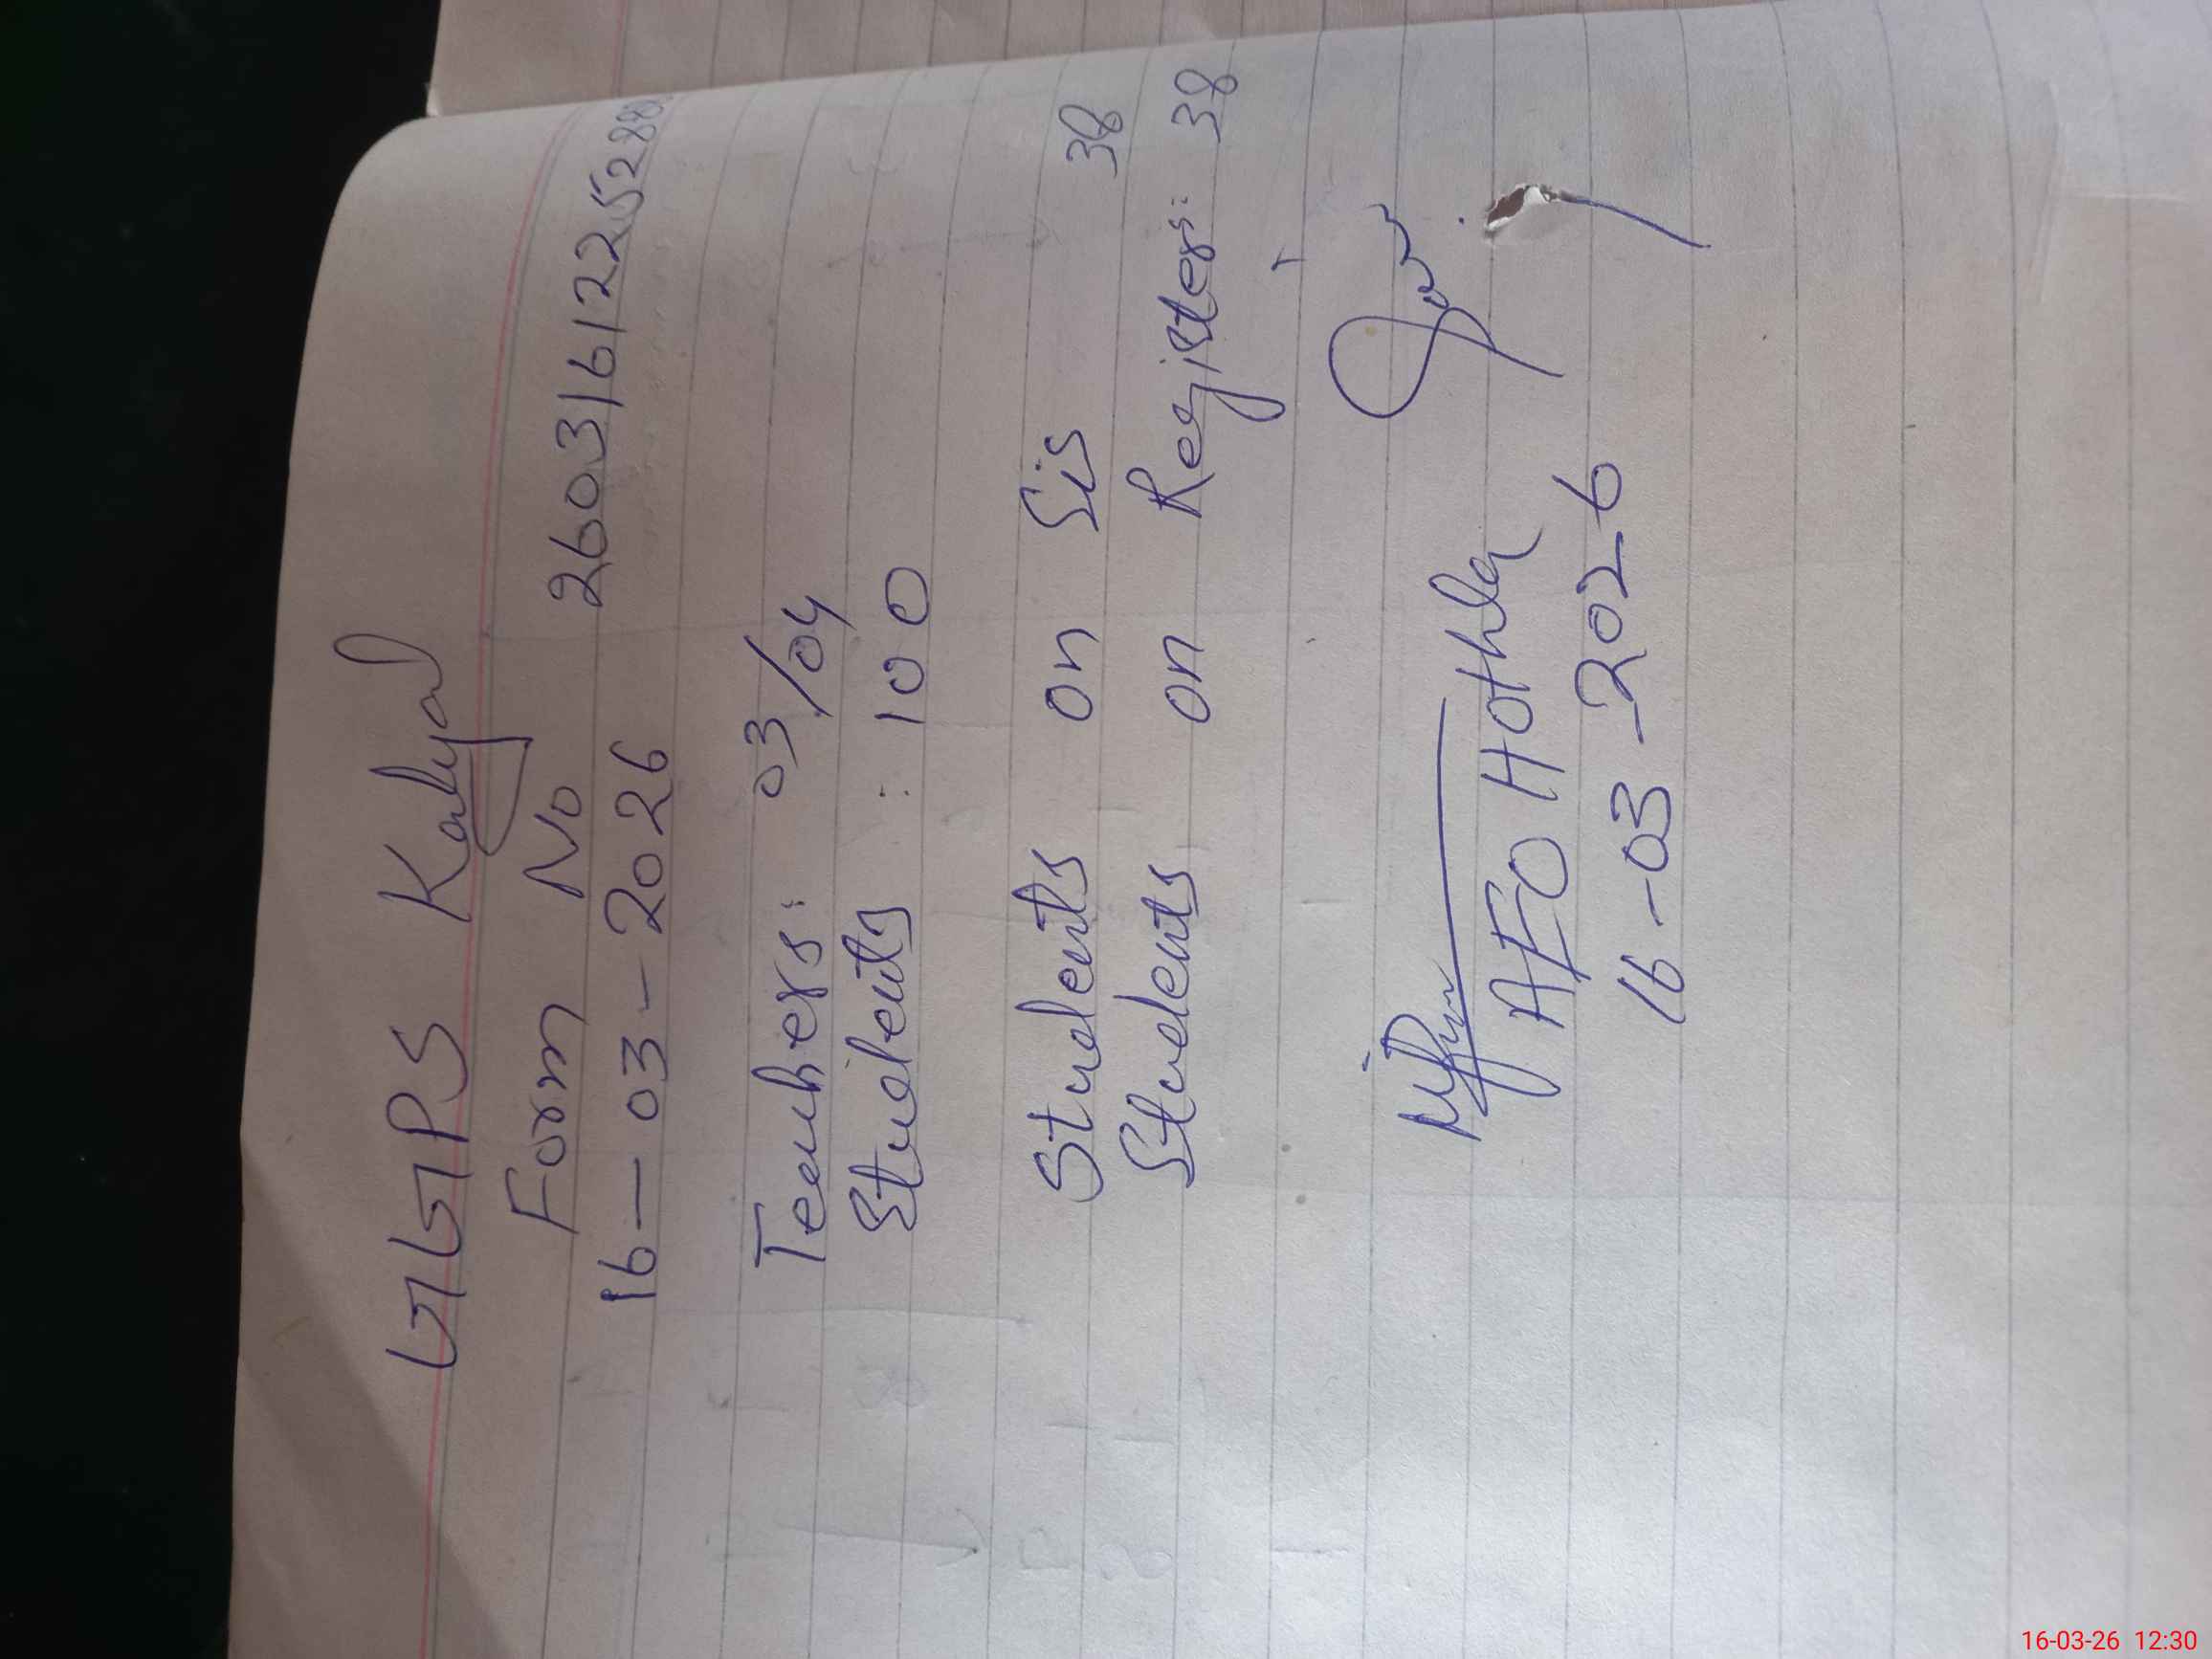 GGPS Kalyal
Form No 260316122528
16-03-2026
Teachers: 03/04
Students : 100
Students on Sis 38
Students on Register: 38
AEO Hothla
16-03-2026
16-03-26 12:30